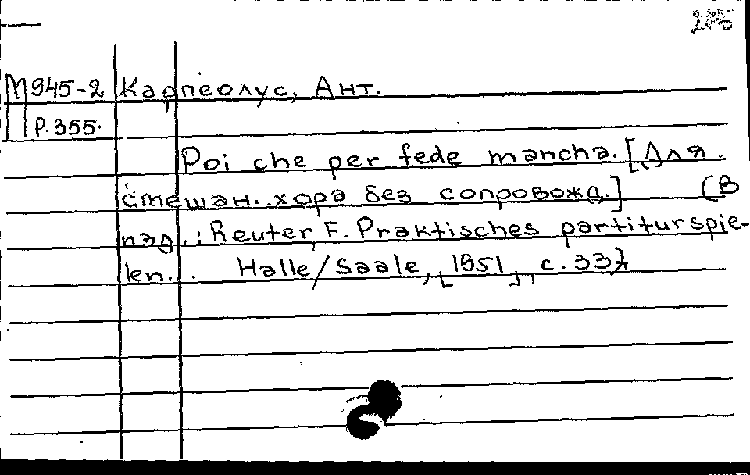 М945-2 Капреолус, Ант.
Р.355.
Poi che per fede mancha. [Для
смешан. хора без сопровожд.] (В
изд.: Reuter, F. Praktisches partiturspie-
len... Halle/Saale, [1951], с. 33)